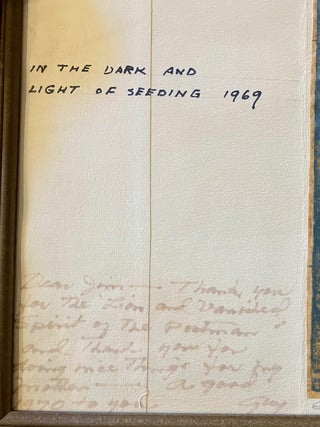 IN THE DARK AND
LIGHT OF SEEDING 1969
Dear Jim — Thank you
for The Lion and Vanished
Spirit of the Postman
and Thank you for
doing nice things for my
mother — A good
1970 to you. Guy